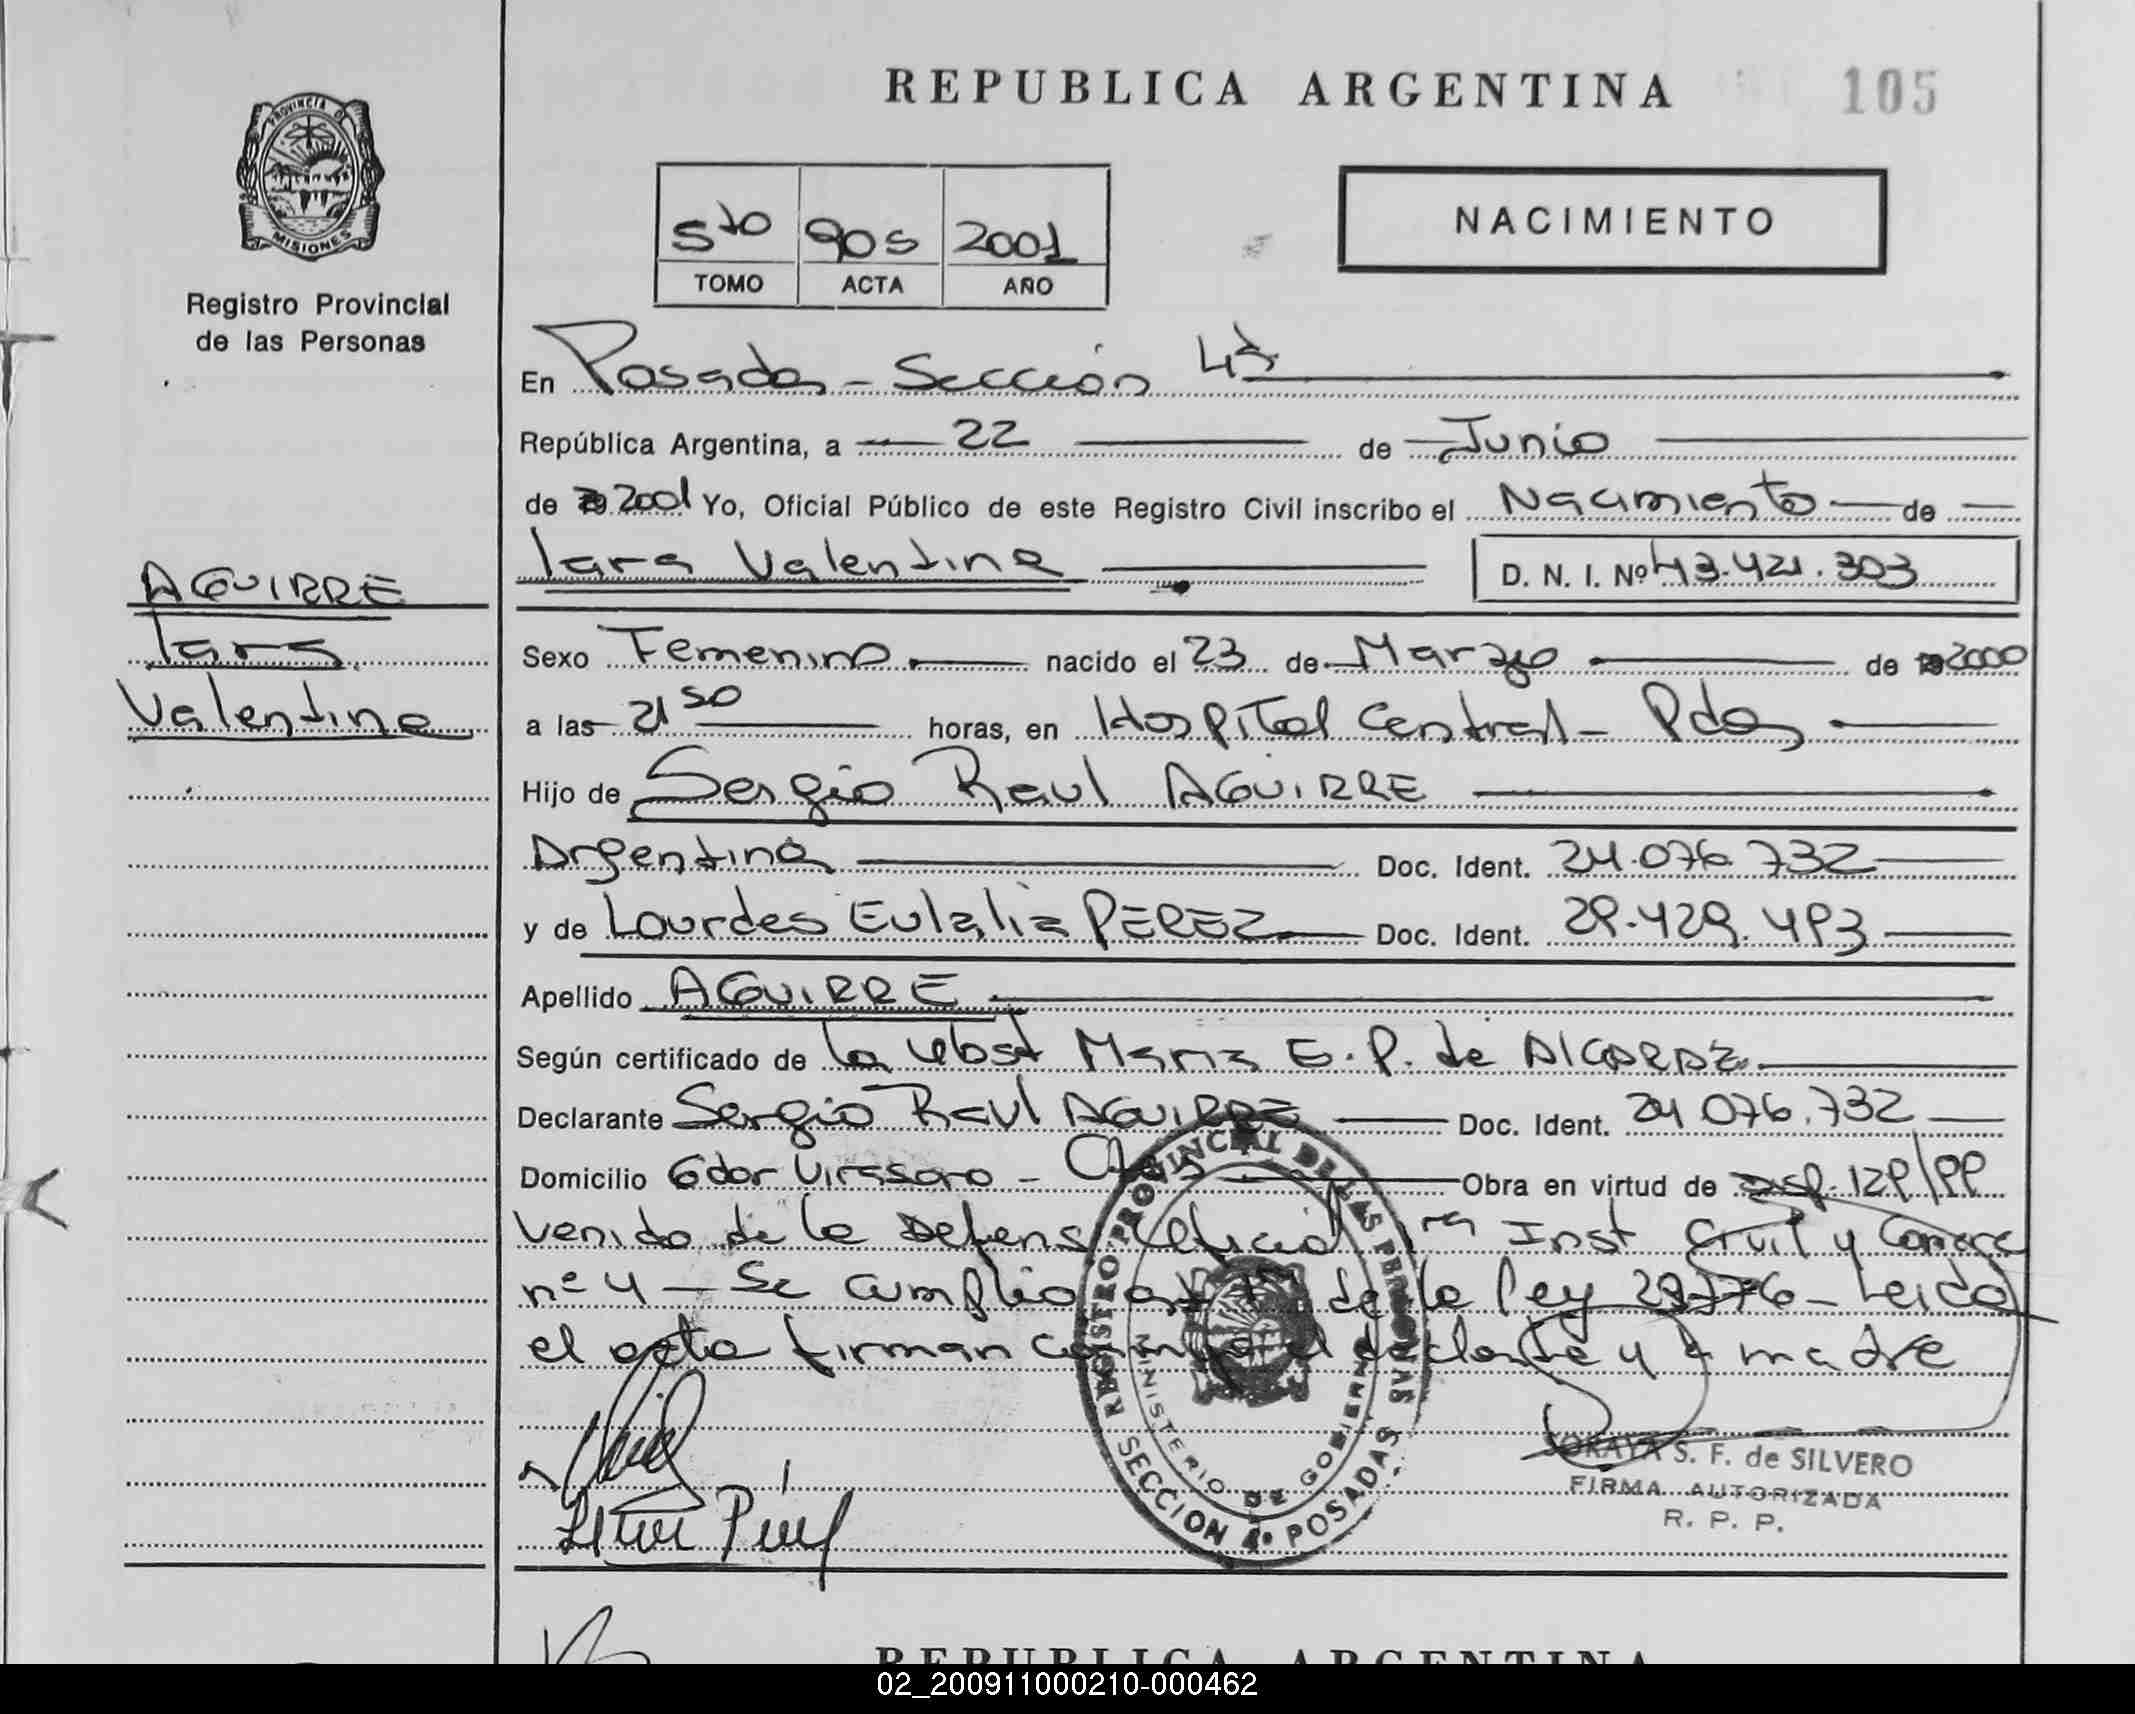 REPUBLICA ARGENTINA
105
PROVINCIA DE
MISIONES
Registro Provincial
de las Personas
5to 905 2001
TOMO ACTA AÑO
NACIMIENTO
En Posadas - Sección 4ª
República Argentina, a 22 de Junio
de 2001 Yo, Oficial Público de este Registro Civil inscribo el Nacimiento de
Iara Valentina D. N. I. Nº 43.421.303
AGUIRRE
Iara
Valentina
Sexo Femenino nacido el 23 de Marzo de 2000
a las 21 50 horas, en Hospital Central - Pdas
Hijo de Sergio Raul AGUIRRE
Argentina Doc. Ident. 24.076.732
y de Lourdes Eulalia PEREZ Doc. Ident. 29.429.493
Apellido AGUIRRE
Según certificado de la Obst Maria E. P. de ALCARAZ
Declarante Sergio Raul AGUIRRE Doc. Ident. 24 076.732
Domicilio Gdor Virasoro - Obra en virtud de 129/99
venido de la Defens Oficial 1ra Inst Civil y
nº 4 - Se cumplio de la ley - Leida
el acta firman el y madre
REGISTRO PROVINCIAL DE LAS PERSONAS
MINISTERIO DE GOBIERNO
SECCION 4ª POSADAS
SORAYA S. F. de SILVERO
FIRMA AUTORIZADA
R. P. P.
REPUBLICA ARGENTINA
02_200911000210-000462